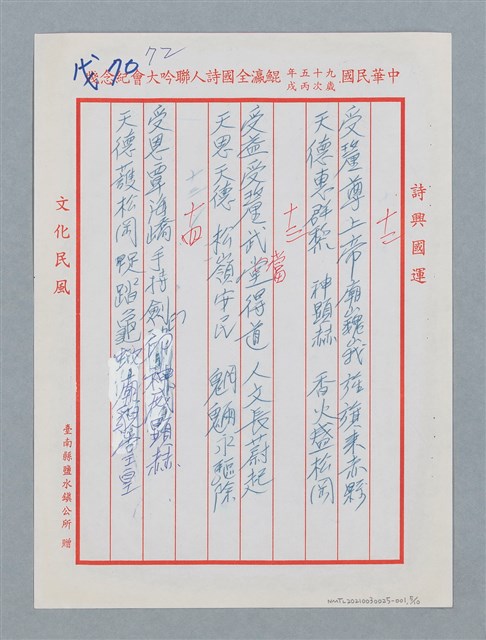 72
戊70
中華民國九十五年歲次丙戌鯤瀛全國詩人聯吟大會紀念箋
詩興國運
十二
受釐尊上帝 廟巍峩 旌旗來赤縣
天德惠群黎 神顯赫 香火盛松岡
十三
受益受釐 武當得道 人文長蔚起
天恩天德 松嶺安民 魍魎永驅除
十四
受恩覃海嶠手持劍 神威顯赫
天德護松岡 踏龜蛇廟貌堂皇
文化民風
臺南縣鹽水鎮公所 贈
NMTL20210030025-001, 8/10